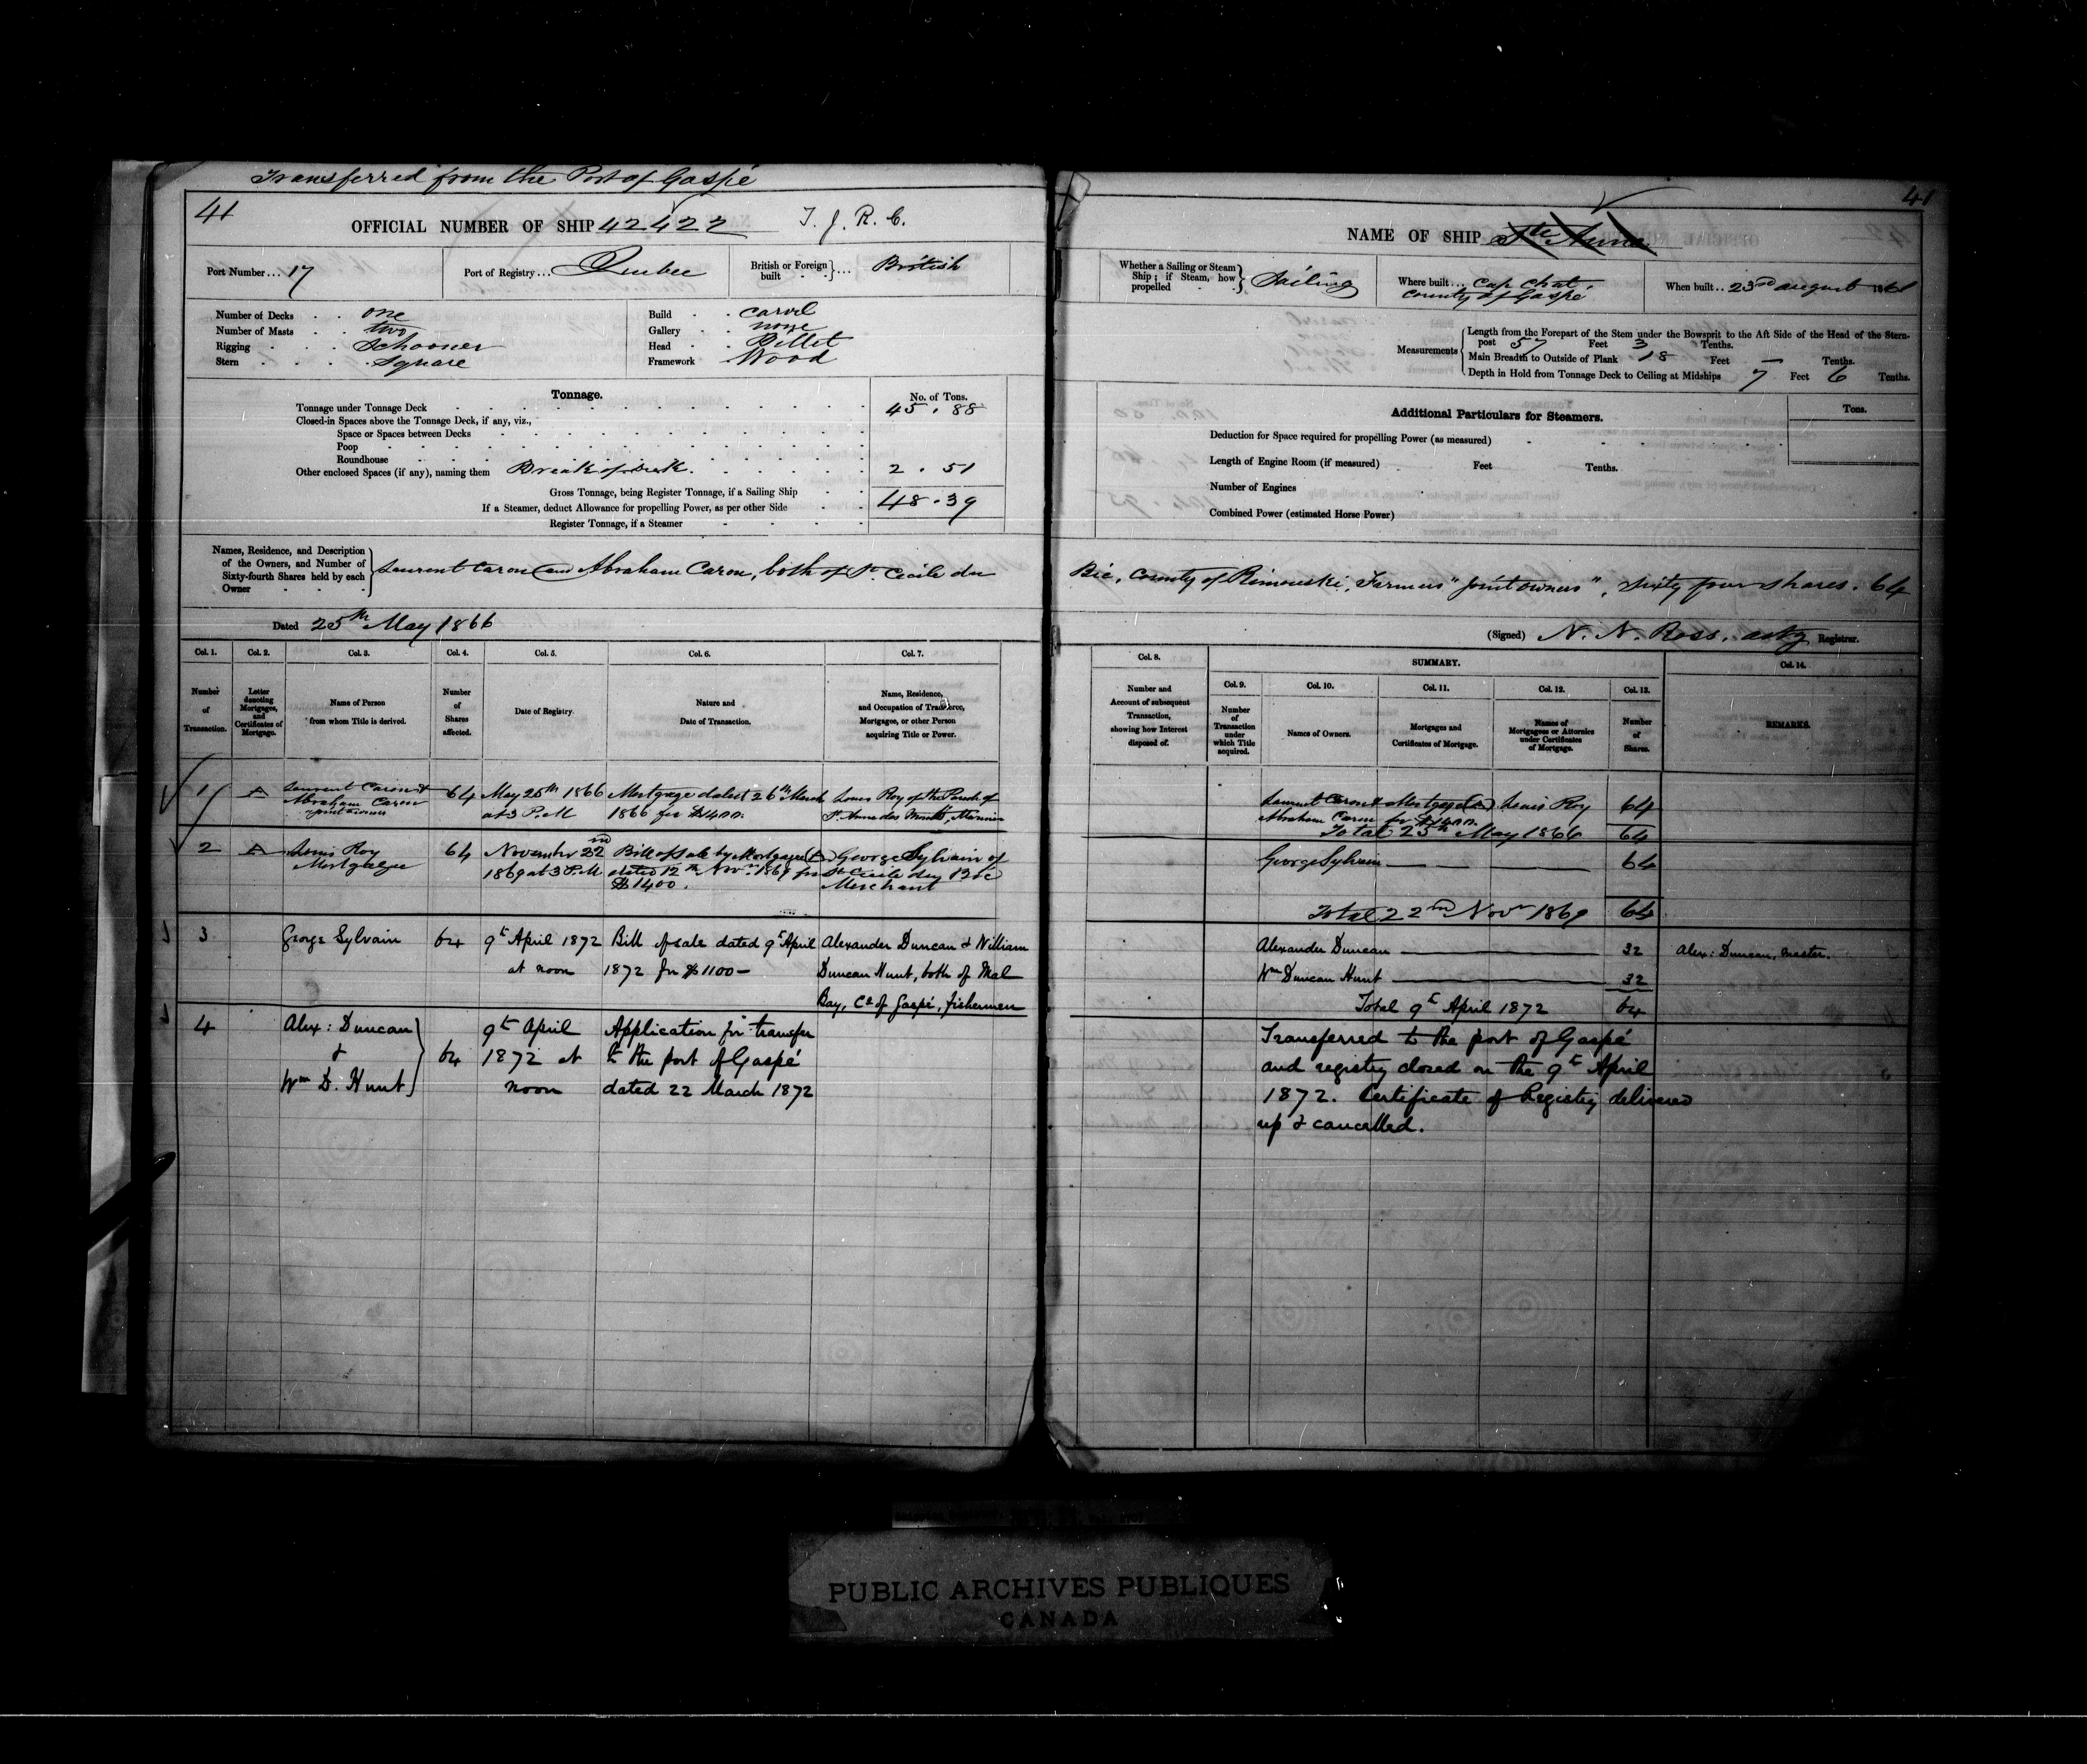 Transferred from the Port of Gaspé
41
OFFICIAL NUMBER OF SHIP 42422 T. J. R. C.
Port Number... 17
Port of Registry... Quebec
British or Foreign built British
Number of Decks one
Number of Masts two
Rigging Schooner
Stern Square
Build carvel
Gallery none
Head Billet
Framework Wood
Tonnage.
No. of Tons.
Tonnage under Tonnage Deck 45.88
Closed-in Spaces above the Tonnage Deck, if any, viz.,
Space or Spaces between Decks
Poop
Roundhouse
Other enclosed Spaces (if any), naming them Break of deck. 2.51
Gross Tonnage, being Register Tonnage, if a Sailing Ship 48.39
If a Steamer, deduct Allowance for propelling Power, as per other Side
Register Tonnage, if a Steamer
Names, Residence, and Description
of the Owners, and Number of
Sixty-fourth Shares held by each
Owner
Laurent Caron and Abraham Caron, both of St. Cecile du
Dated 25th May 1866
Col. 1. Col. 2. Col. 3. Col. 4. Col. 5. Col. 6. Col. 7.
Number of Transaction.
Letter denoting Mortgages, and Certificates of Mortgage.
Name of Person from whom Title is derived.
Number of Shares affected.
Date of Registry.
Nature and Date of Transaction.
Name, Residence, and Occupation of Transferee, Mortgagee, or other Person acquiring Title or Power.
1 A Laurent Caron & 64 May 25th 1866 Mortgage dated 26th March Louis Roy of the Parish of
Abraham Caron at 3 P.M 1866 for $1400. St. Anne des Monts, Mariner
joint owners
2 A Louis Roy 64 November 22nd Bill of Sale by Mortgagee (A) George Sylvain of
Mortgagee 1869 at 3 P.M dated 12th Novr. 1869 for St Cecile du Bic
$1400. Merchant
3 George Sylvain 64 9th April 1872 Bill of sale dated 9th April Alexander Duncan & William
at noon 1872 for $1100- Duncan Hunt, both of Mal
Bay, Co of Gaspé, fishermen
4 Alex: Duncan 9th April Application for transfer
& 64 1872 at to the port of Gaspé
Wm D. Hunt noon dated 22 March 1872
41
NAME OF SHIP Ste Anne
Whether a Sailing or Steam Ship; if Steam, how propelled Sailing
Where built... Cap Chat
County of Gaspé
When built.. 23rd august 1861
Measurements
Length from the Forepart of the Stem under the Bowsprit to the Aft Side of the Head of the Stern-
post 57 Feet 3 Tenths.
Main Breadth to Outside of Plank 18 Feet — Tenths.
Depth in Hold from Tonnage Deck to Ceiling at Midships 7 Feet 6 Tenths.
Additional Particulars for Steamers.
Tons.
Deduction for Space required for propelling Power (as measured)
Length of Engine Room (if measured) Feet Tenths.
Number of Engines
Combined Power (estimated Horse Power)
Bic, County of Rimouski, Farmers "joint owners", Sixty four shares. 64
(Signed) N. N. Ross, actg Registrar.
Col. 8. SUMMARY. Col. 14.
Col. 9. Col. 10. Col. 11. Col. 12. Col. 13.
Number and Account of subsequent Transaction, showing how Interest disposed of.
Number of Transaction under which Title acquired.
Names of Owners.
Mortgages and Certificates of Mortgage.
Names of Mortgagees or Attornies under Certificates of Mortgage.
Number of Shares.
REMARKS.
Laurent Caron & Mortgage (A) Louis Roy 64
Abraham Caron for $1400.
Total 25th May 1866 64
George Sylvain 64
Total 22nd Novr 1869 64
Alexander Duncan 32 Alex: Duncan, master.
Wm Duncan Hunt 32
Total 9th April 1872 64
Transferred to the port of Gaspé
and registry closed on the 9th April
1872. Certificate of Registry delivered
up & cancelled.
PUBLIC ARCHIVES PUBLIQUES
CANADA